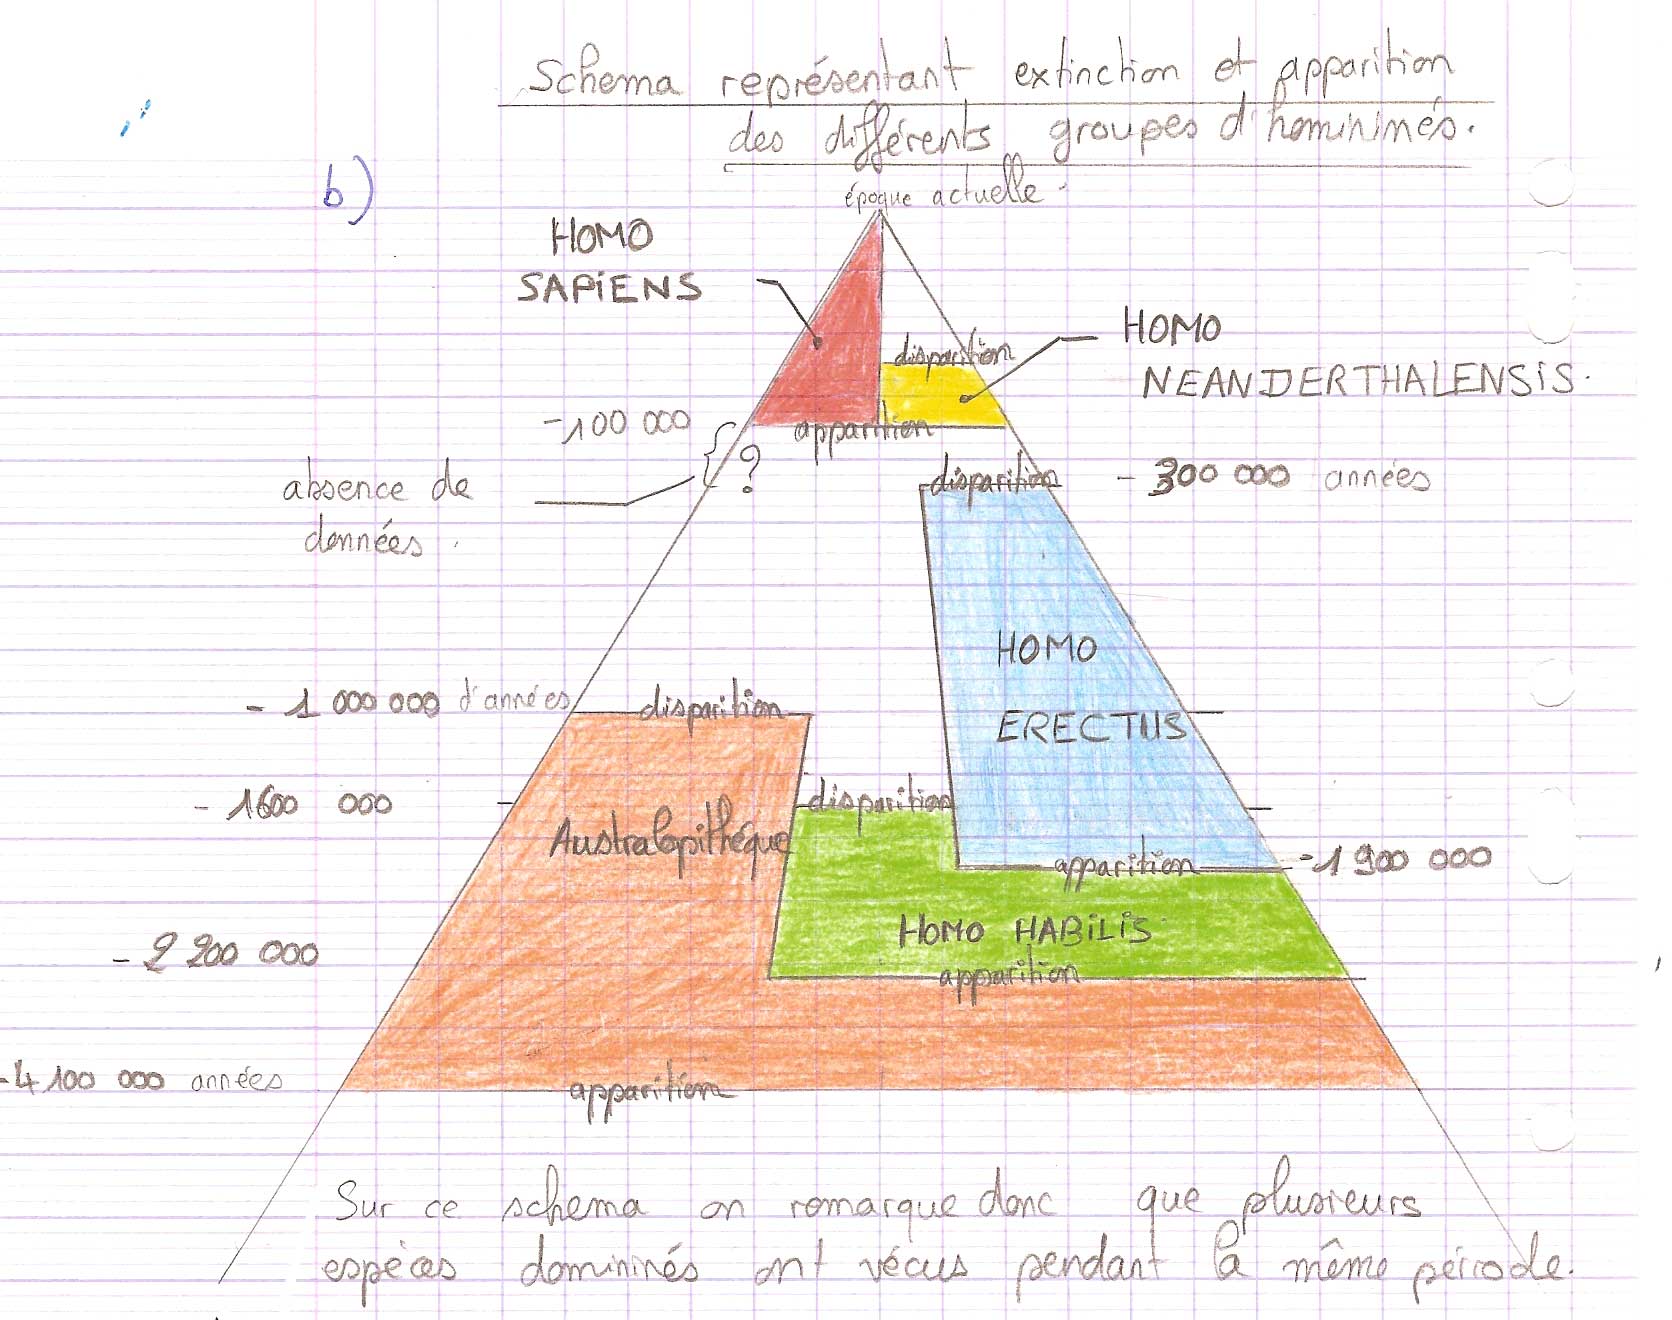 Schema représentant extinction et apparition
des différents groupes d'hominimés.
b)
époque actuelle
HOMO
SAPiENS
disparition
HOMO
NEANDERTHALENSiS.
-100 000
apparition
?
absence de
données.
disparition
- 300 000 années
HOMO
ERECTUS
- 1 000 000 d'années
disparition
- 1600 000
disparition
Australopithéque
apparition
-1 900 000
HOMO HABiLiS
- 2 200 000
apparition
-4 100 000 années
apparition
Sur ce schema on remarque donc que plusieurs
espèces dominimés ont vécus pendant la même période.